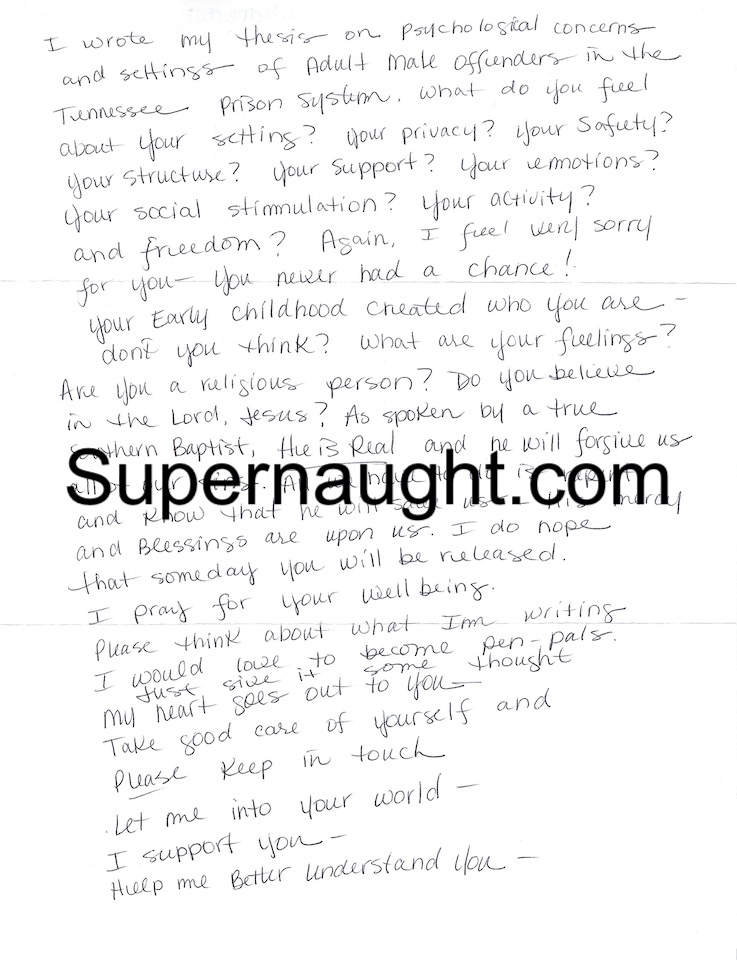 I wrote my thesis on Psychological concerns
and settings of Adult male offenders in the
Tennessee Prison System. What do you feel
about your setting? your privacy? your Safety?
your structure? your support? your emotions?
your social stimmulation? your activity?
and freedom? Again, I feel very sorry
for you— you never had a chance!
your Early childhood created who you are –
don't you think? What are your feelings?
Are you a religious person? Do you believe
in the Lord, Jesus? As spoken by a true
Southern Baptist, He is Real and he will forgive us
all of our sins.
Supernaught.com
and know that he will save us – His mercy
and Blessings are upon us. I do hope
that someday you will be released.
I pray for your well being.
Please think about what I'm writing
I would love to become pen-pals.
Just give it some thought
my heart goes out to you—
Take good care of yourself and
Please keep in touch
Let me into your world —
I support you —
Help me Better understand you —